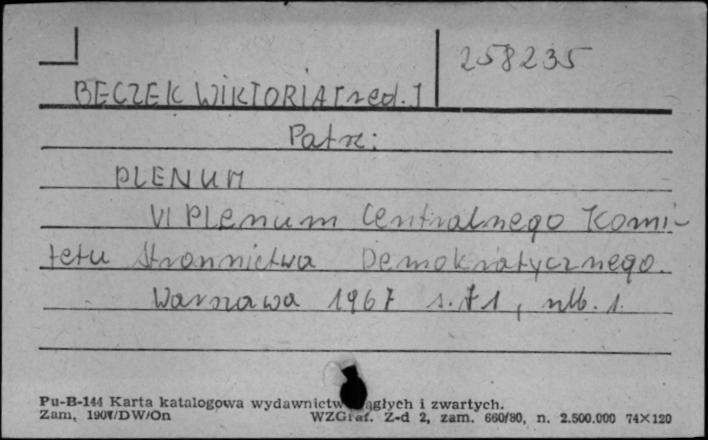 258235
BECZEK WIKTORIA [red.]
Patrz:
PLENUM
VI Plenum Centralnego Komi-
tetu Stronnictwa Demokratycznego.
Warszawa 1967 s. 71, nlb. 1.
Pu-B-144 Karta katalogowa wydawnictw ągłych i zwartych.
Zam. 1907/DW/On WZGraf. Z-d 2, zam. 660/80, n. 2.500.000 74×120